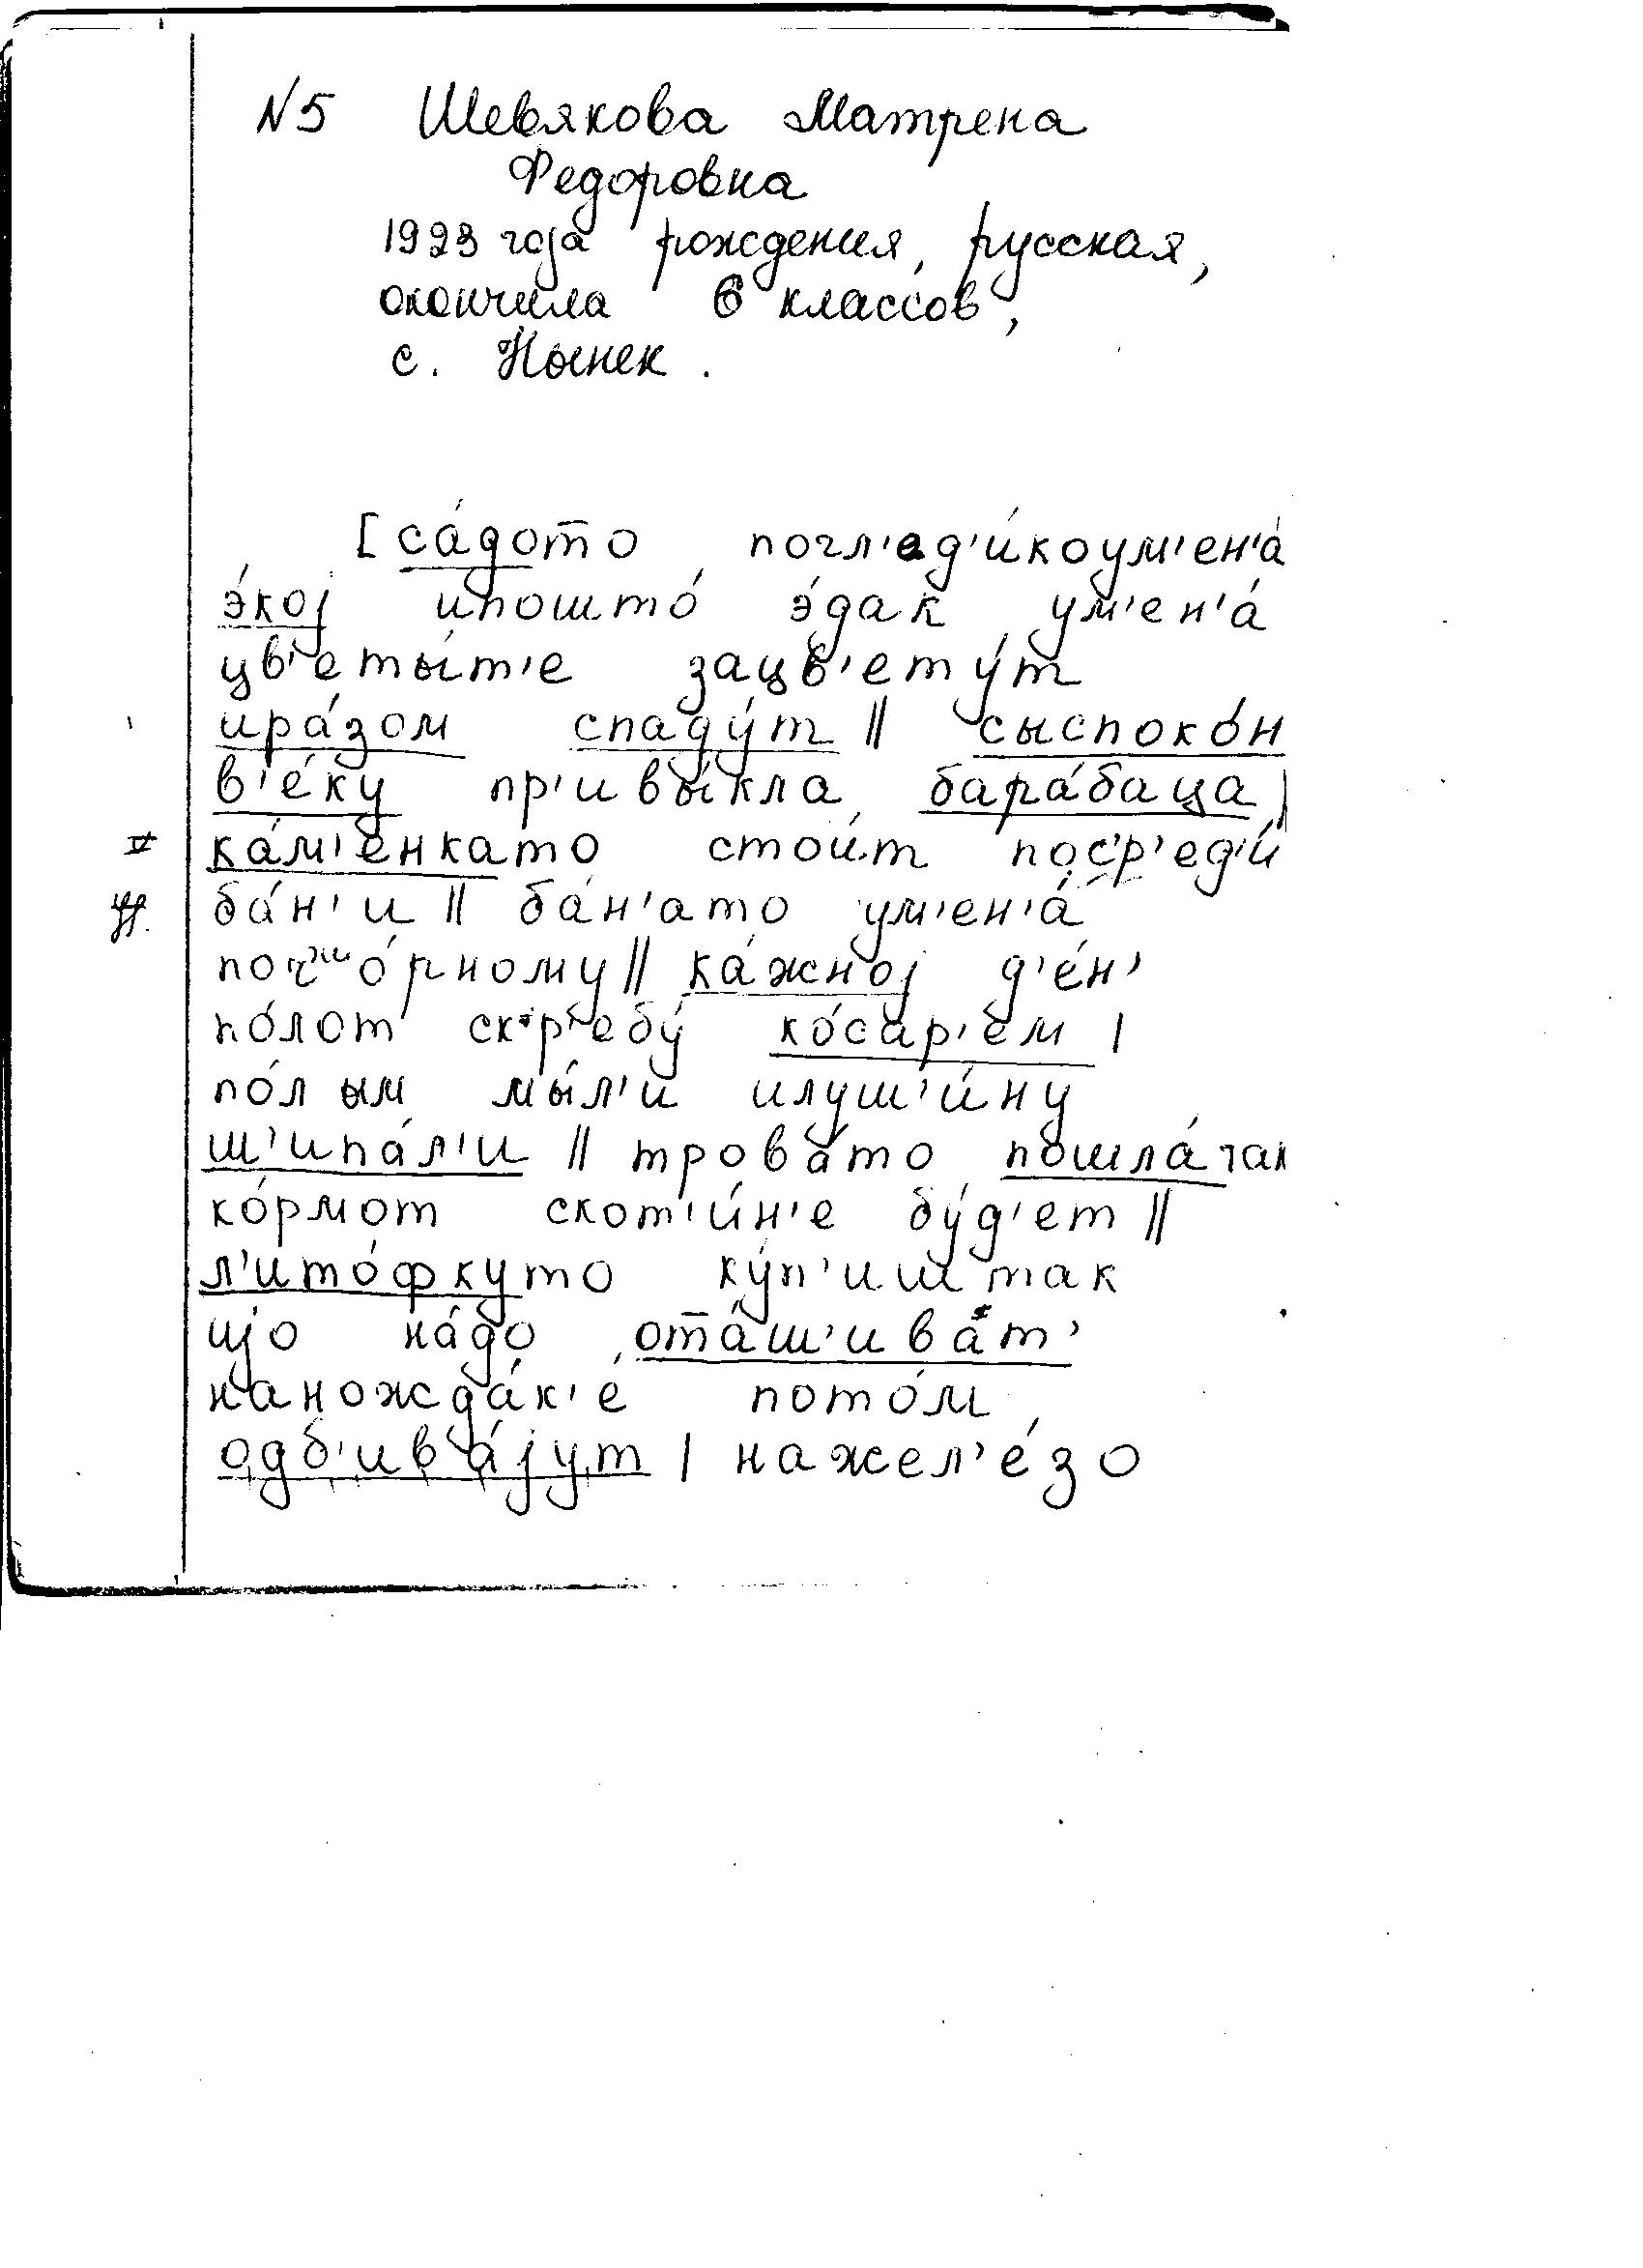 N5 Шевякова Матрена
Федоровна
1923 года рождения, русская,
окончила 6 классов,
с. Нынек.
[са́дото погл'ед'и́коум'ен'а́
э́кој ипошто́ э́дак ум'ен'а́
цв'еты́т'е зацв'ету́т
ира́зом спаду́т || сыспоко́н
в'е́ку пр'ивы́кла бара́баца |
ка́м'енкато стои́т поср'ед'и́
ба́н'и || ба́н'ато ум'ен'а́
по о́рному || ка́жној д'е́н'
по́лот скр'ебу́ ко́сар'ем |
по́лым мы́л'и илуш'и́ну
ш'ипа́л'и || трова́то пошла́так
ко́рмот скот'и́н'е бу́д'ет ||
л'ито́фкуто ку́п'иш так
јо на́до ота́ш'иват'
нанождак'е пото́м
одб'ива́јут | нажел'е́зо